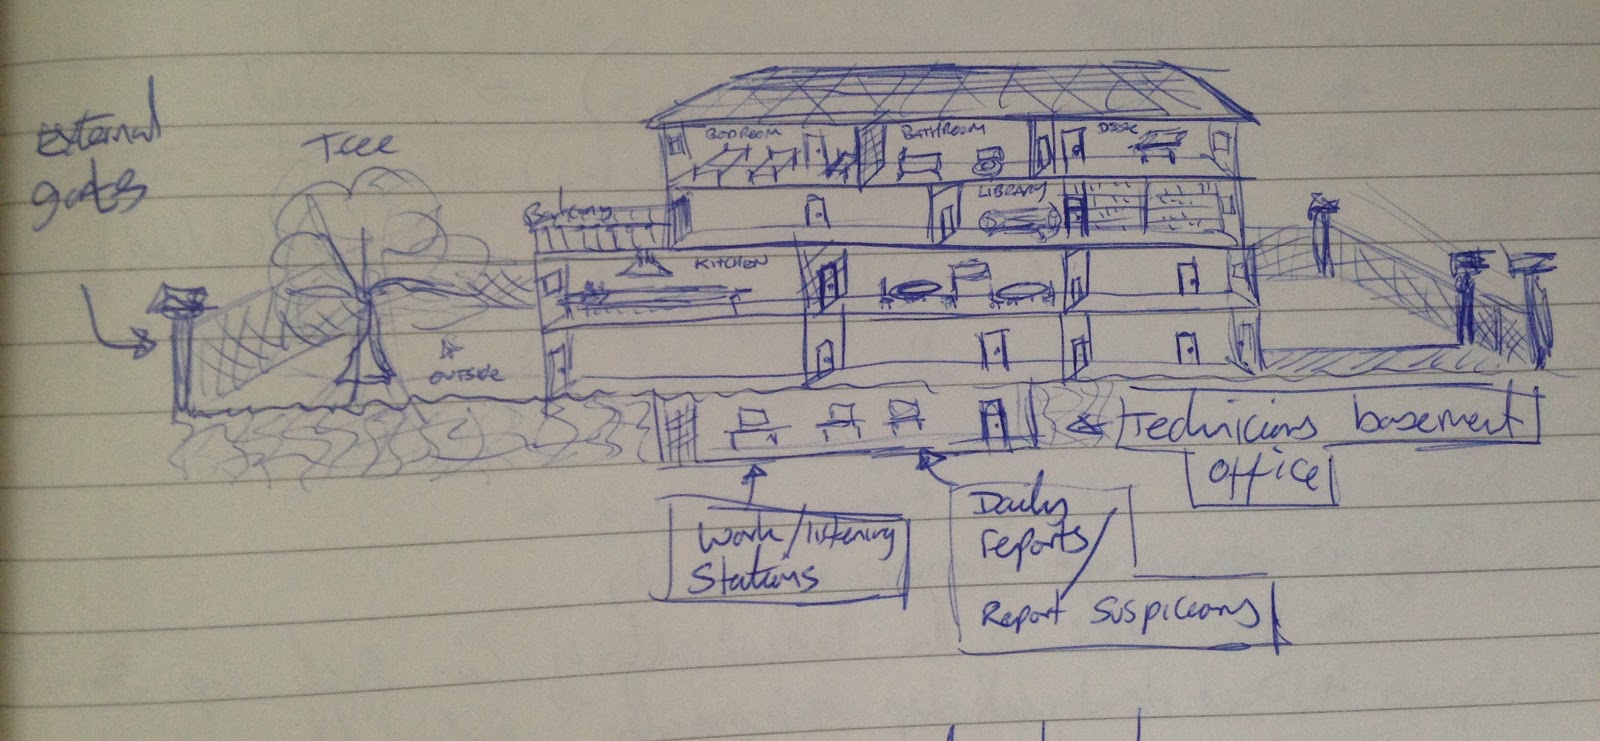 External
gates
Tree
BEDROOM
BATHROOM
DESK
LIBRARY
Balcony
KITCHEN
OUTSIDE
Technicians basement
office
Work/listening
Stations
Daily
reports/
Report Suspicions